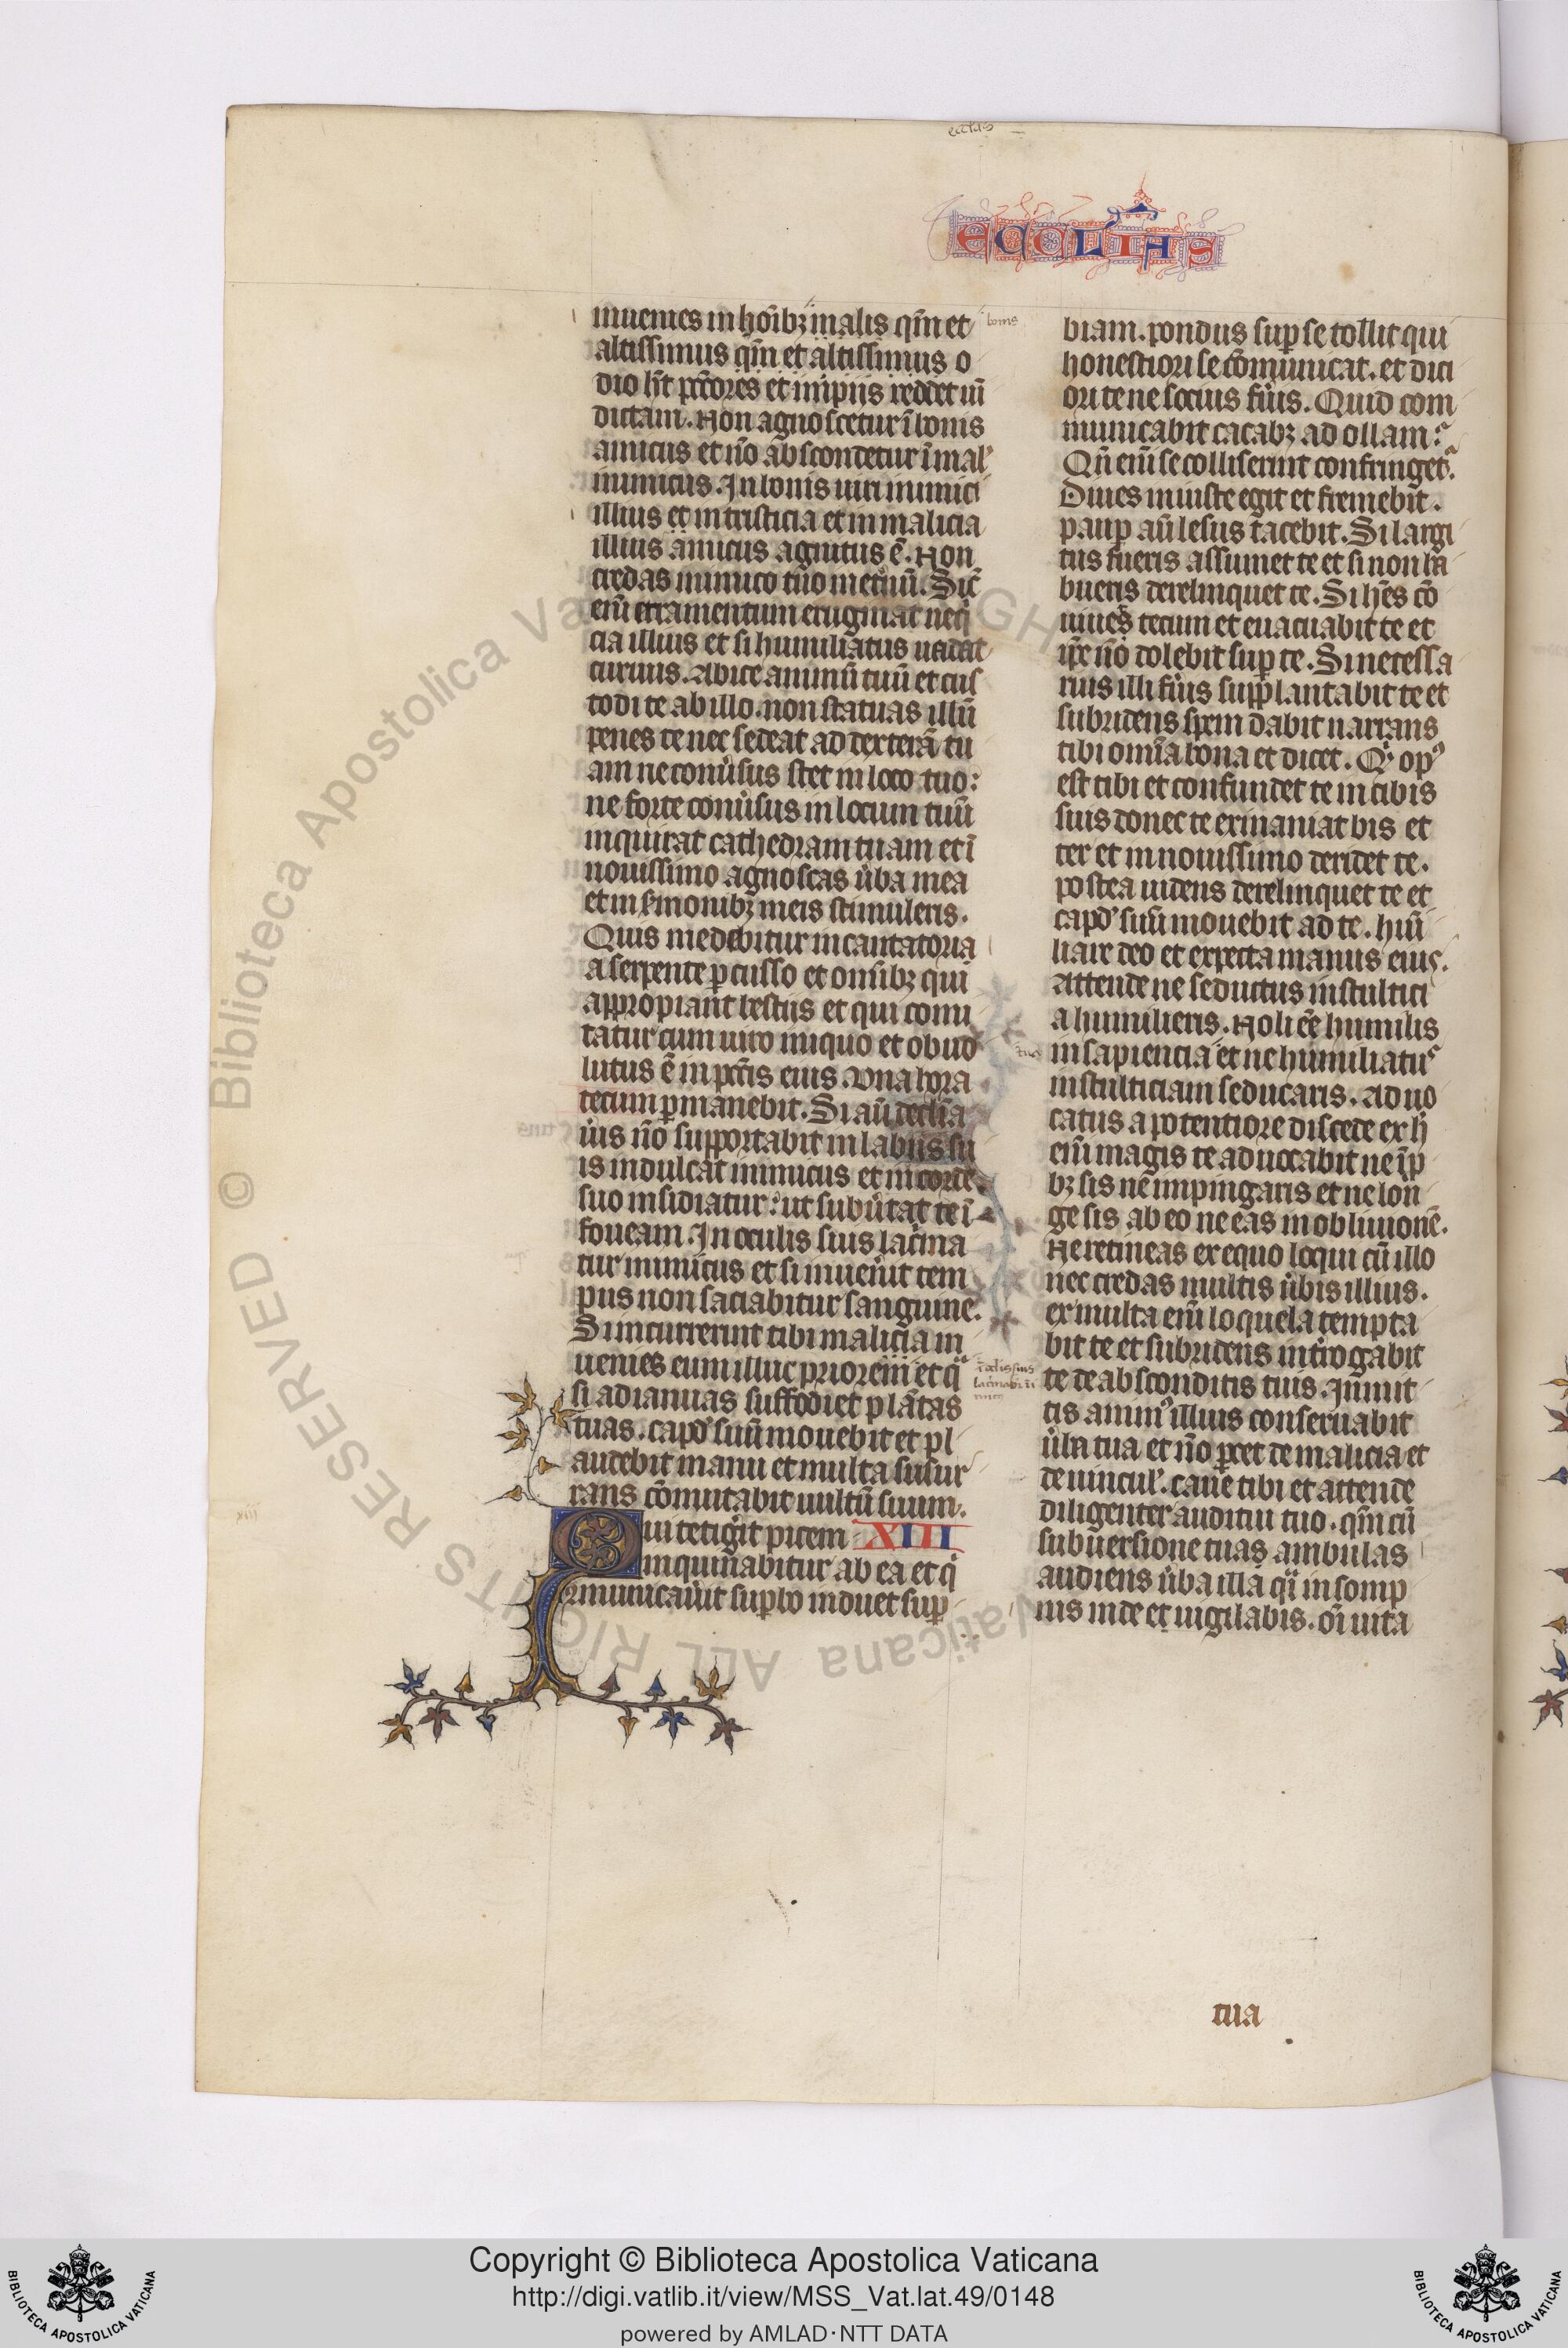 ecc̄tas
ECCLIAS
inuenies in hoībꝫ malis qm̄ et
bonis
altissimus qm̄ et altissimus o
dio hīt pctōres et impiis reddet uī
dictam. Non agnoscetur ī bonis
amicus et nō abscondetur ī mal᾽
inimicus. In bonis uiri inimici
illius et in tristicia et in malicia
illius amicus agnitus ē. Non
credas inimico tuo in et̄nū. Sic̄
eni̅ erramentum eruginat neq̇
cia illius et si humiliatus uadat
curuus. Abice animū tuū et cus
todi te ab illo. non statuas illū
penes te nec sedeat ad dexterā tu
am ne conūsus stet in loco tuo:
ne forte conūsus in locum tuū
inquirat cathedram tuam et ī
nouissimo agnoscas ūba mea
et in s̄monibꝫ meis stimuleris.
Quis medebitur incantatoria
a serpente ꝑcusso et om̄ibꝫ qui
appropiant bestiis et qui comi
tatur cum uiro iniquo et obuo
lutus ē in pctīs eius. Vna hora
tecum ꝑmanebit. Si aū declīa
ūis nō supportabit in labiis su
is indulcat inimicus et in corde
suo insidiatur: ut subūtat te ī
foueam. In oculis suis lac̄ma
tur inimicus et si inuen̄it tem
pus non saciabitur sanguine.
Si incurrerint tibi malicia in
uenies eum illuc priorem et qͣ
ī oculis suis
lac̄mabit̄ i
nimic᾽
si adianuas suffodiet plātas
tuas. capd᾽ suū mouebit et pl
audebit manu et multa susur
rans cōmutabit uultū suum.
Qui tetiḡit picem XIII
inquinabitur ab ea et q̇
cōmunicaūit supbo induet sup
biam. pondus sup se tollit qui
honestiori se cōmunicat. et diti
ori te ne socius fūis. Quid com
municabit cacabꝫ ad ollam:
Qn̄ eni̅ se colliserint confringet᾽.
Diues iniuste egit et fremebit.
paup aū lesus tacebit. Si largi
tus fueris assumet te et si non ha
bueris derelinquet te. Si hēs cō
uiuet tecum et euacuabit te et
ip̄e nō dolebit sup te. Si necessa
rius illi fūis supplantabit te et
subridens spem dabit narrans
tibi omīa bona et dicet. Q̇ op᾽
est tibi et confundet te in cibis
suis donec te exinaniat bis et
ter et in nouissimo deridet te.
postea uidens derelinquet te et
capd᾽ suū mouebit ad te. Humī
liare deo et expecta manus eius.
Attende ne seductus in stultici
a humilieris. Noli eē humilis
in sapiencia tua et ne humiliatus
in stulticiam seducaris. Aduo
catus a potentiore discede ex h̄
eni̅ magis te aduocabit ne īp
bꝫ sis ne impingaris et ne lon
ge sis ab eo ne eas in obliuionē.
Ne retineas ex equo loqui cū illo
nec credas multis ūbis illius.
ex multa eni̅ loquela tempta
bit te et subridens int̄rogabit
te de absconditis tuis. Inmit
tis anim᾽ illius conseruabit
ūba tua et nō ꝑcet de malicia et
de uincul᾽. caue tibi et attende
diligenter auditui tuo. qm̄ cū
subuersione tuas ambulas
audiens ūba illa qͣi in somp
nis inde et uigilabis. oī uita
tua
Copyright © Biblioteca Apostolica Vaticana
http://digi.vatlib.it/view/MSS_Vat.lat.49/0148
powered by AMLAD·NTT DATA